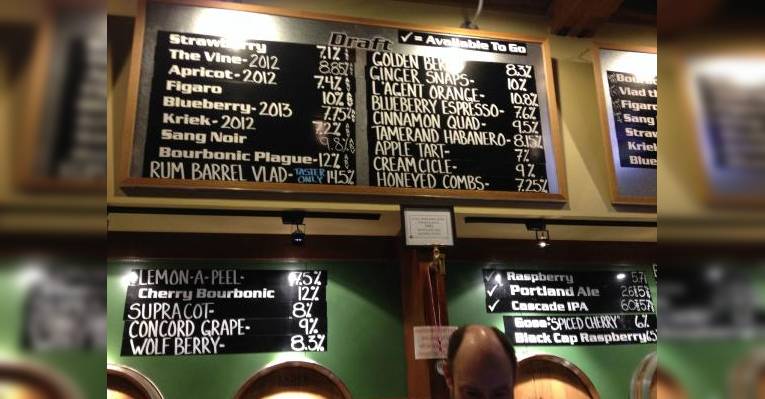 Draft
✓ = Available To Go
Strawberry 7.1%
The Vine-2012 8.85%
Apricot-2012 7.4%
Figaro 10%
Blueberry-2013 7.75%
Kriek-2012 7.2%
Sang Noir 9.8%
Bourbonic Plague-12%
RUM BARREL VLAD- TASTER ONLY 14.5%
GOLDEN 8.3%
GINGER SNAPS- 10%
L'AGENT ORANGE- 10.8%
BLUEBERRY ESPRESSO- 7.6%
CINNAMON QUAD- 9.5%
TAMERAND HABANERO- 8.15%
APPLE TART- 7%
CREAMCICLE- 9%
HONEYED COMBS- 7.25%
Vlad
Figaro
Sang
Straw
Kriek
Blue
LEMON-A-PEEL- 7.5%
Cherry Bourbonic 12%
SUPRACOT- 8%
CONCORD GRAPE- 9%
WOLF BERRY- 8.3%
✓ Raspberry 5.7
✓ Portland Ale
✓ Cascade IPA
Gose "SPICED CHERRY" 6%
Black Cap Raspberry